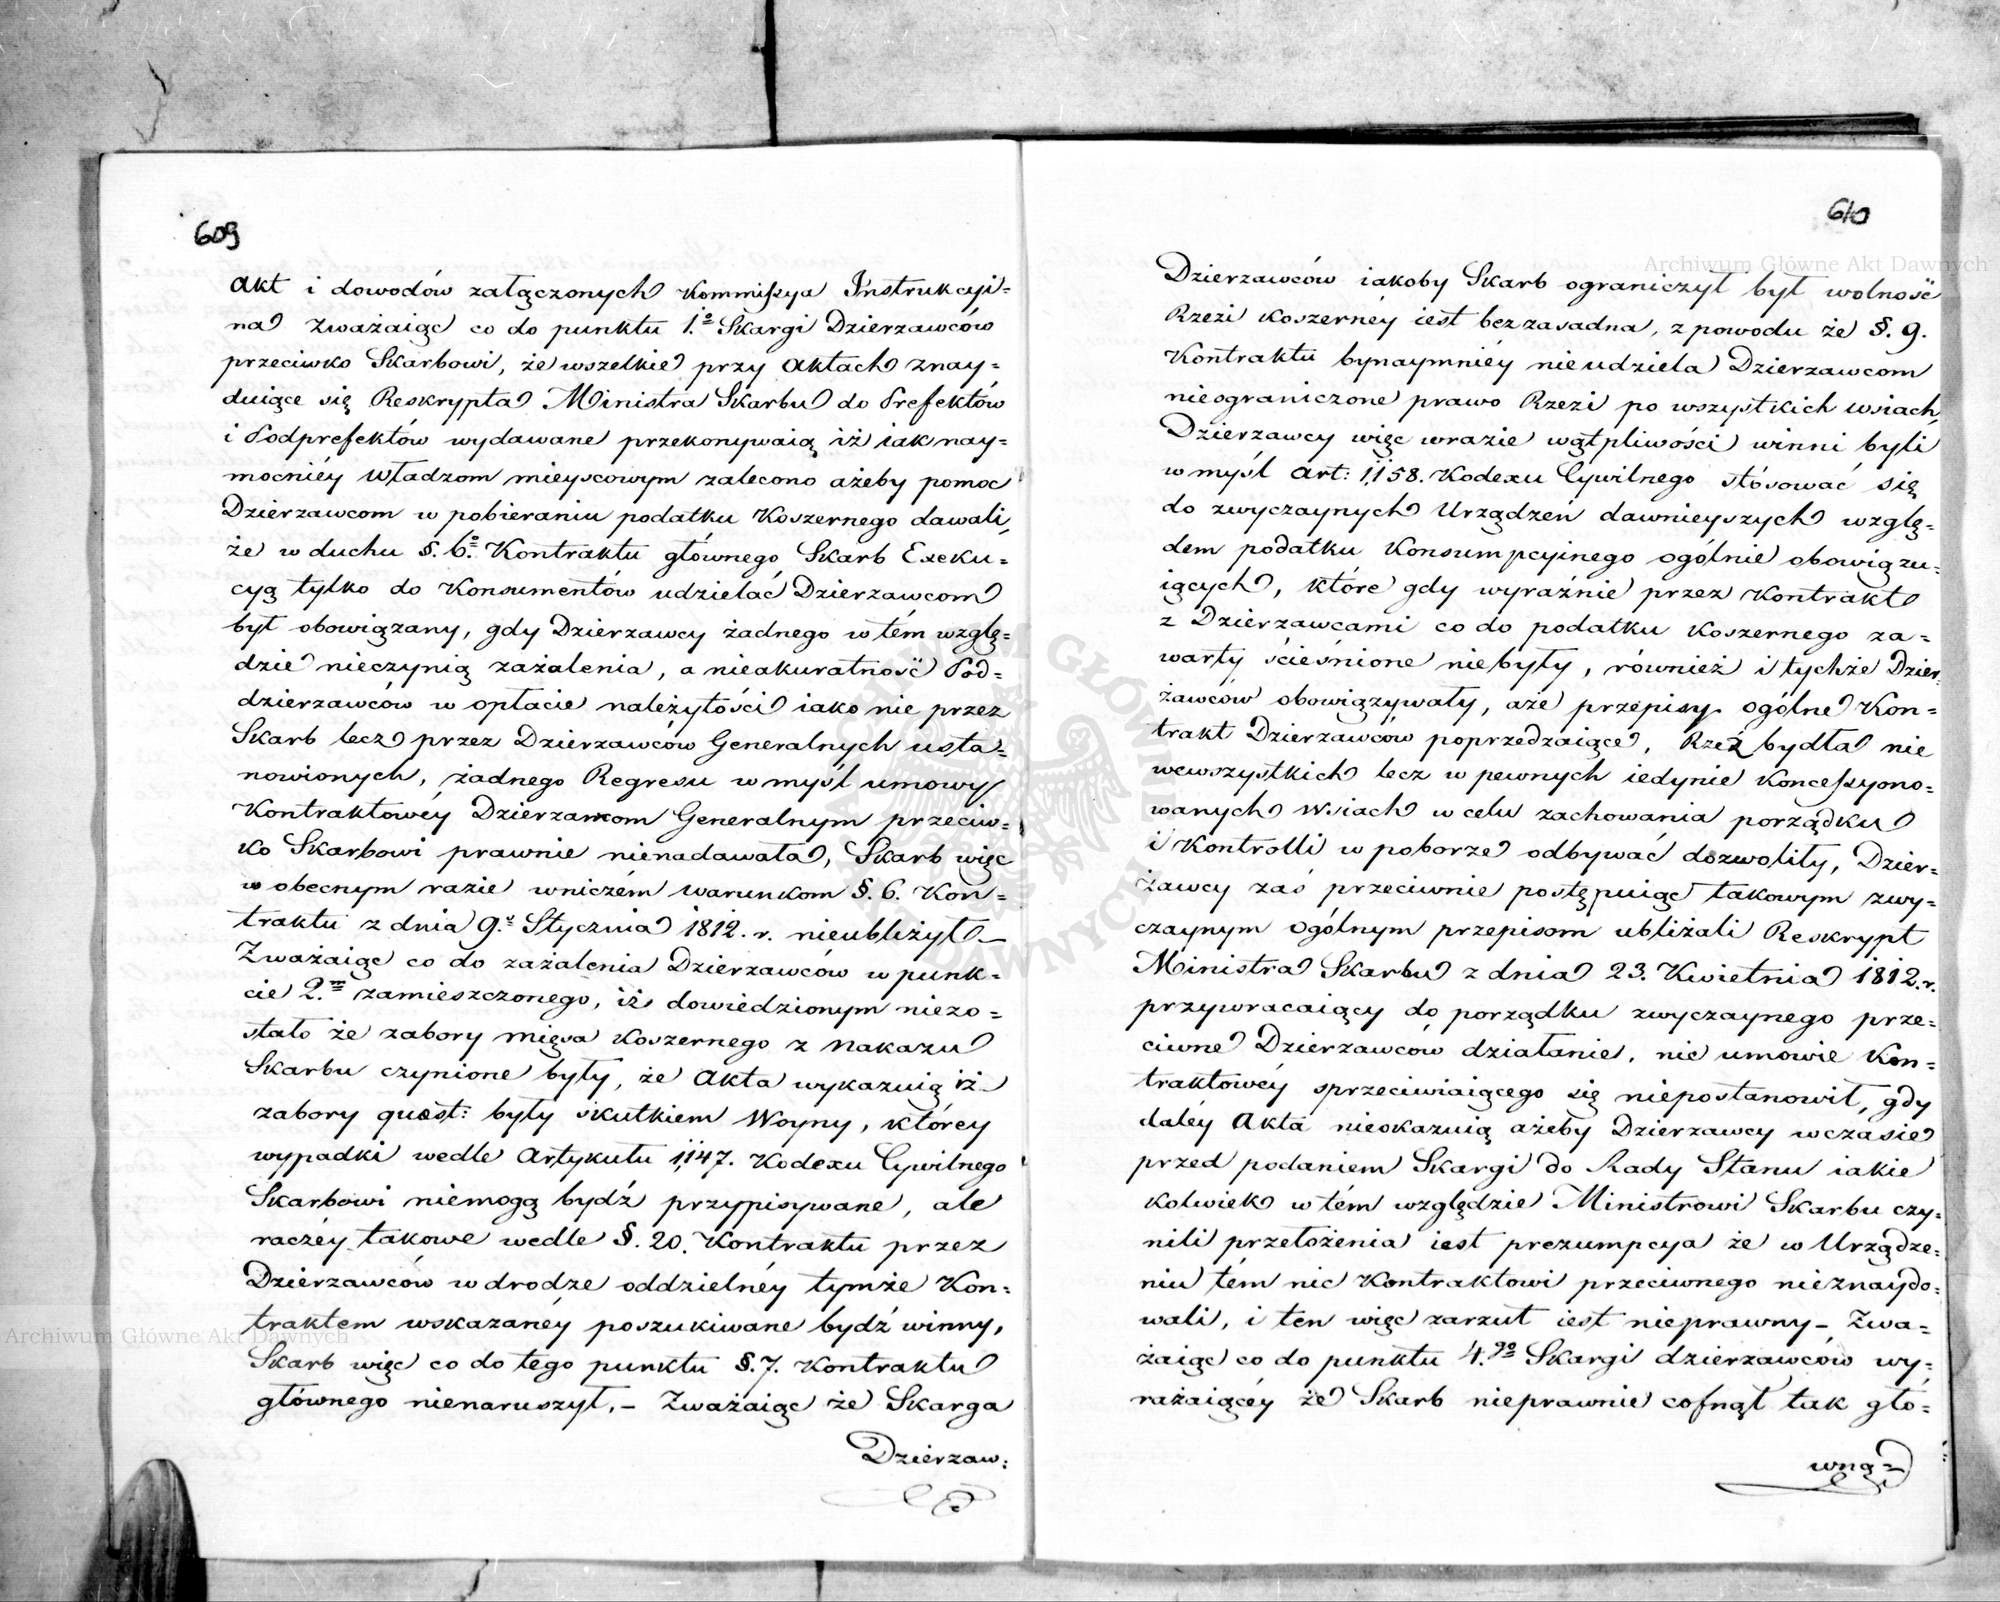 609
Akt i dowodów załączonych Kommissya Instrukcyi=
na zważaiąc co do punktu 1.º Skargi Dzierzawców
przeciwko Skarbowi, że wszelkie przy Aktach znay=
duiące się Reskrypta Ministra Skarbu do Prefektów
i Podprefektów wydawane przekonywaią iż iak nay=
mocniéy Władzom mieyscowym zalecono ażeby pomoc
Dzierzawcom w pobieraniu podatku Koszernego dawali,
że w duchu §. 6.º Kontraktu głównego Skarb Exeku=
cyą tylko do Konsumentów udzielać Dzierzawcom
był obowiązany, gdy Dzierzawcy żadnego w tém wzglę=
dzie nieczynią zażalenia, a nieakuratność Pod=
dzierzawców w opłacie należytości iako nie przez
Skarb lecz przez Dzierzawców Generalnych usta=
nowionych, żadnego Regresu w myśl umowy
Kontraktowéy Dzierzawcom Generalnym przeciw=
ko Skarbowi prawnie nienadawała, Skarb więc
w obecnym razie wniczém warunkom §. 6. Kon=
traktu z dnia 9.º Stycznia 1812. r. nieubliżył –
Zważaiąc co do zażalenia Dzierzawców w punk=
cie 2.m zamieszczonego, iż dowiedzionym niezo=
stało że zabory mięsa Koszernego z Nakazu
Skarbu czynione były, że Akta wykazuią iż
zabory quest: były skutkiem Woyny, którey
wypadki wedle Artykułu 1,147. Kodexu Cywilnego
Skarbowi niemogą bydź przypisywane, ale
raczéy takowe wedle §. 20. Kontraktu przez
Dzierzawców w drodze oddzielnéy tymże Kon=
traktem wskazanéy poszukiwane bydź winny,
Skarb więc co do tego punktu §. 7. Kontraktu
głównego nienaruszył. – Zważaiąc że Skarga
Dzierzaw:
610
Dzierzawców iakoby Skarb ograniczył był wolność
Rzezi Koszernéy iest bezzasadna, z powodu że §. 9.
Kontraktu bynaymniéy nieudziela Dzierzawcom
nieograniczone prawo Rzezi po wszystkich wsiach,
Dzierzawcy więc wrazie wątpliwości winni byli
w myśl Art: 1,158. Kodexu Cywilnego stósować się
do zwyczaynych Urządzeń dawnieyszych wzglę=
dem podatku Konsumpcyinego ogólnie obowiązu=
iących, które gdy wyraźnie przez Kontrakt
z Dzierzawcami co do podatku Koszernego za=
warty ścieśnione niebyły, również i tychże Dzier=
żawców obowiązywały, aże przepisy ogólne Kon=
trakt Dzierzawców poprzedzaiące, Rzeź bydła nie
wewszystkich lecz w pewnych iedynie Koncessyono=
wanych Wsiach w celu zachowania porządku
i Kontrolli w poborze odbywać dozwoliły, Dzier=
żawcy zaś przeciwnie postępuiąc takowym zwy=
czaynym ogólnym przepisom ubliżali Reskrypt
Ministra Skarbu z dnia 23. Kwietnia 1812. r.
przywracaiący do porządku zwyczaynego prze=
ciwne Dzierzawców działanie, nic umowie Kon=
traktowéy sprzeciwiaiącego się niepostanowił, gdy
daléy Akta nieokazuią ażeby Dzierzawcy wczasie
przed podaniem Skargi do Rady Stanu iakie
kolwiek w tém względzie Ministrowi Skarbu czy=
nili przełożenia iest prezumpcya że w Urządze=
niu tém nic Kontraktowi przeciwnego nieznaydo=
wali, i ten więc zarzut iest nieprawny –, Zwa=
żaiąc co do punktu 4.go Skargi dzierzawców wy=
rażaiącéy że Skarb nieprawnie cofnął tak głó=
wną=
Archiwum Główne Akt Dawnych
Archiwum Główne Akt Dawnych
ARCHIWUM GŁÓWNE AKT DAWNYCH